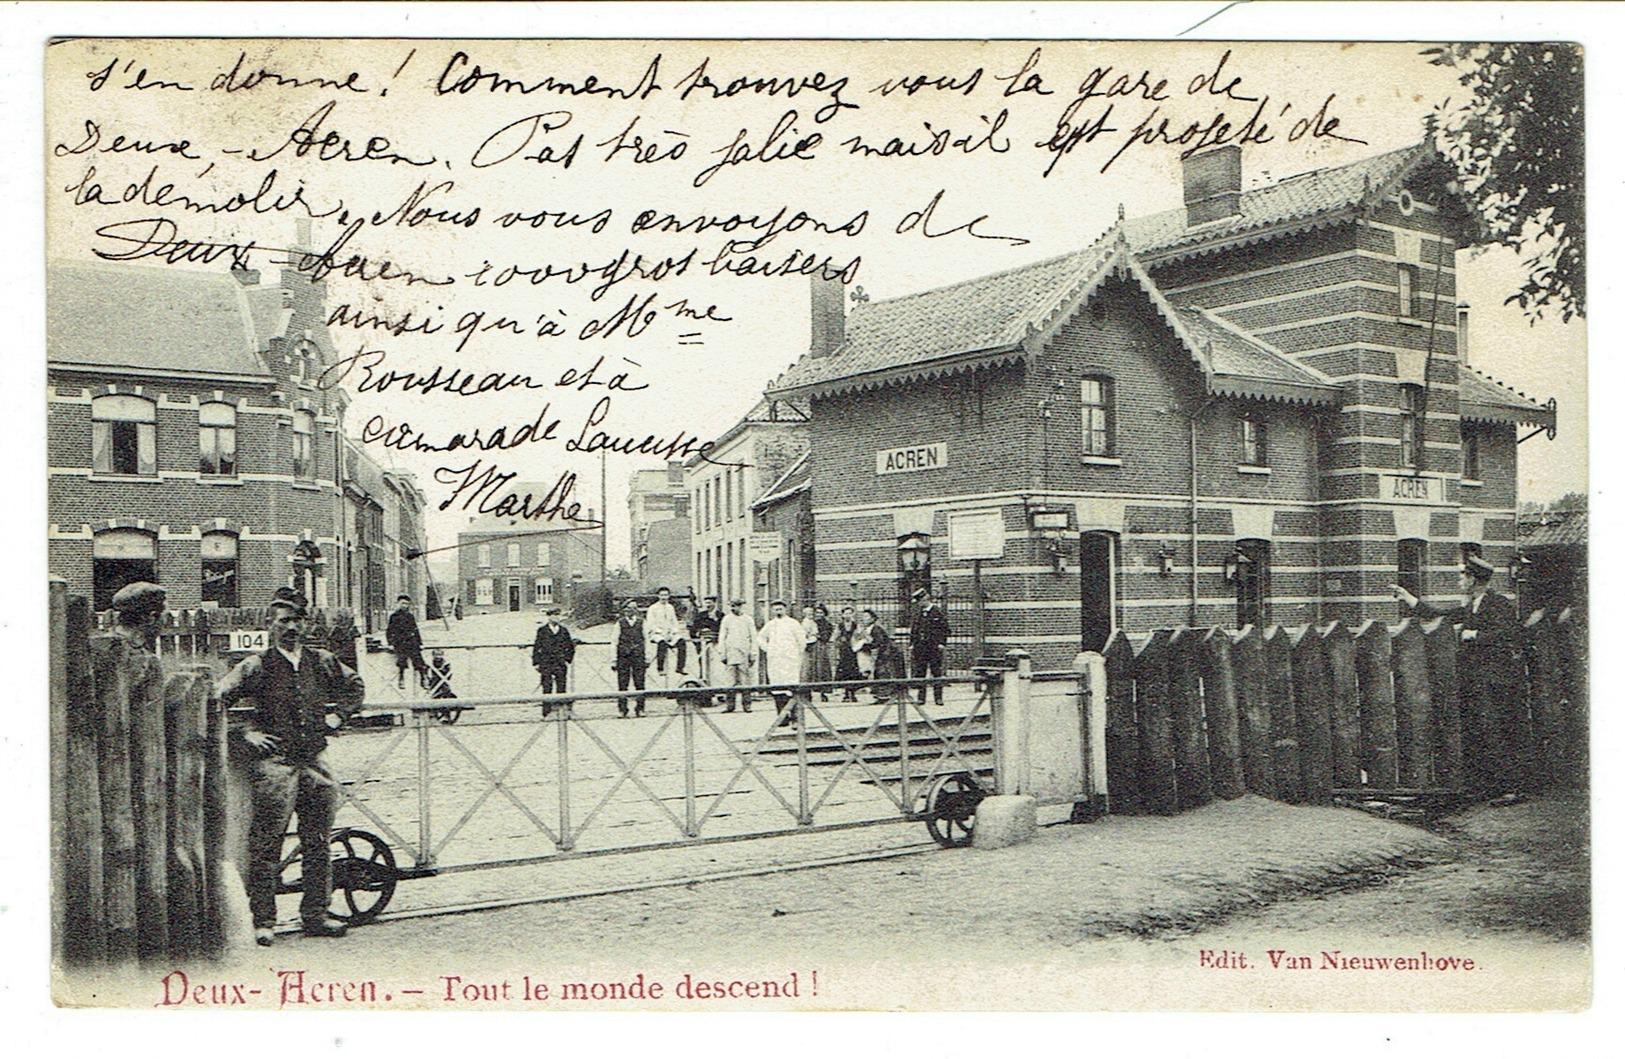 s'en donne! Comment trouvez vous la gare de
Deux-Acren. Pas très jolie mais il est projeté de
la démolir. Nous vous envoyons de
Deux-Acren 1000 gros baisers
ainsi qu'à Mme
Rousseau et à
camarade
Marthe
ACREN
ACREN
104
Deux-Acren. — Tout le monde descend !
Edit. Van Nieuwenhove.